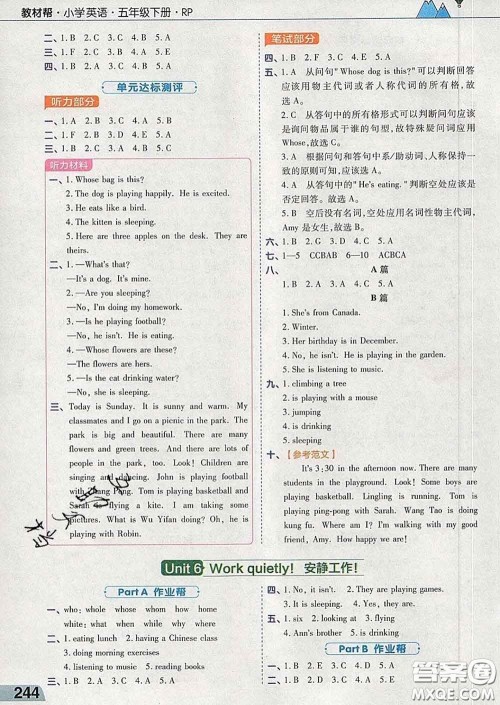 教材帮·小学英语·五年级下册·RP
二、1. B 2. A 3. B 4. B 5. A
三、1. B 2. C 3. D 4. C 5. A
四、1. B 2. A 3. C 4. D 5. A
单元达标测评
听力部分
一、1. A 2. B 3. C 4. A 5. C
二、1. A 2. B 3. C 4. C 5. B
三、1. A 2. B 3. C 4. D 5. A
听力材料
一、1. Whose bag is this?
2. The dog is playing happily. He is excited.
3. He eats like a bird.
4. The kitten is sleeping.
5. Here are three apples on the desk. They are
theirs.
二、1. —What's that?
—It's a dog. It's mine.
2. —Are you sleeping?
—No, I'm doing my homework.
3. —Is he playing football?
—No, he isn't. He is eating.
4. —Whose flowers are these?
—The flowers are her.
5. —Is the cat drinking water?
—No, it is sleeping.
三、Today is Sunday. It is sunny and warm. My
classmates and I go on a picnic in the park. The
park is big and beautiful. There are many
flowers and green trees. And there are lots of
people in the park, too. Look! Children are
singing and dancing. John is playing football
with Zhang Peng. Tom is playing basketball and
Sarah is flying a kite. I am taking some
pictures. What is Wu Yifan doing? Oh, he is
playing with Robin.
笔试部分
四、1. B 2. C 3. D 4. C 5. A
五、1. A 从问句"Whose dog is this?"可以判断回答
应该用物主代词或者人称代词的所有格,故
选A。
2. C 从答句中的所有格形式可以判断问句应该
是询问物品属于谁的句型,故特殊疑问词应用
Whose,故选C。
3. A 根据问句和答句中系/助动词、人称保持一
致的原则可知,应选A。
4. A 从答句中的"He's eating."判断空处应该是
否定回答,故选A。
5. B 空后没有名词,空处应用名词性物主代词,
Amy是女生,故选B。
六、1. B 2. D 3. C 4. E 5. A
七、1—5 CCBAB 6—10 ACBCA
八、 A篇
1. B 2. A 3. C 4. A 5. A
B篇
1. She's from Canada.
2. Winter.
3. Her birthday is in December.
4. No, he isn't. He is playing the pipa.
5. She is listening to music.
九、1. climbing a tree
2. is playing with a mouse
3. jumping
4. is drinking
5. sleeping
十、【参考范文】
It's 3:30 in the afternoon now. There are many
students in the playground. Look! Some boys are
playing basketball. Lingling is running. Tom is
playing ping-pong with Sarah. Wang Tao is doing
kung fu. Where am I? I am walking with my good
friend, Amy. How happy we are!
Unit 6 Work quietly! 安静工作!
Part A 作业帮
一、who: whole whose whom how home
white: what when while why where
二、1. eating lunch 2. having a Chinese class
3. reading a book
4. listening to music 5. reading books
三、1. B 2. A 3. C 4. A 5. A
四、1. No, it isn't. 2. They are playing games.
3. It is sleeping. 4. Yes, I am.
5. Yes, they are.
五、1. six 2. looking at 3. is flying
4. Ann's brother 5. is dancing
Part B 作业帮
一、1. B 2. C 3. B 4. A 5. A
二、1. B 2. B 3. A 4. B 5. A
244
答案圈
MXQE.COM